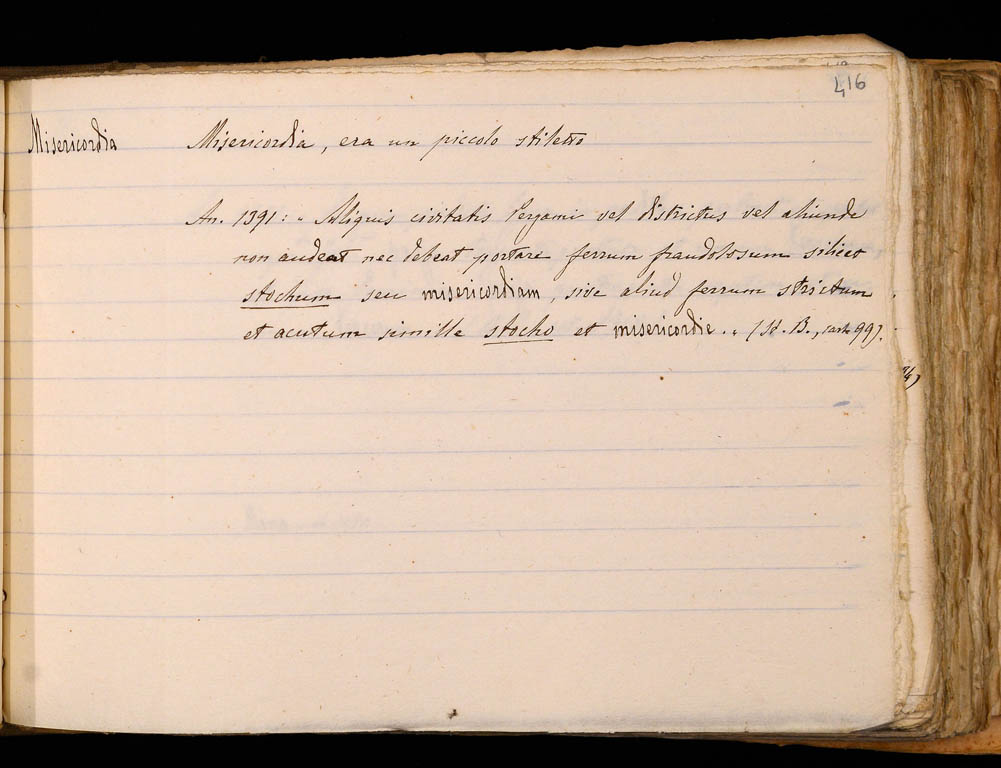 416
Misericordia Misericordia, era un piccolo stiletto
An. 1391: " Aliquis civitatis Pergami vel districtus vel aliunde
non audeat nec debeat portare ferrum fraudolosum silicet
stochum seu misericordiam, sive aliud ferrum strictum
et acutum simille stocho et misericordie. " (St. B., carta 99).